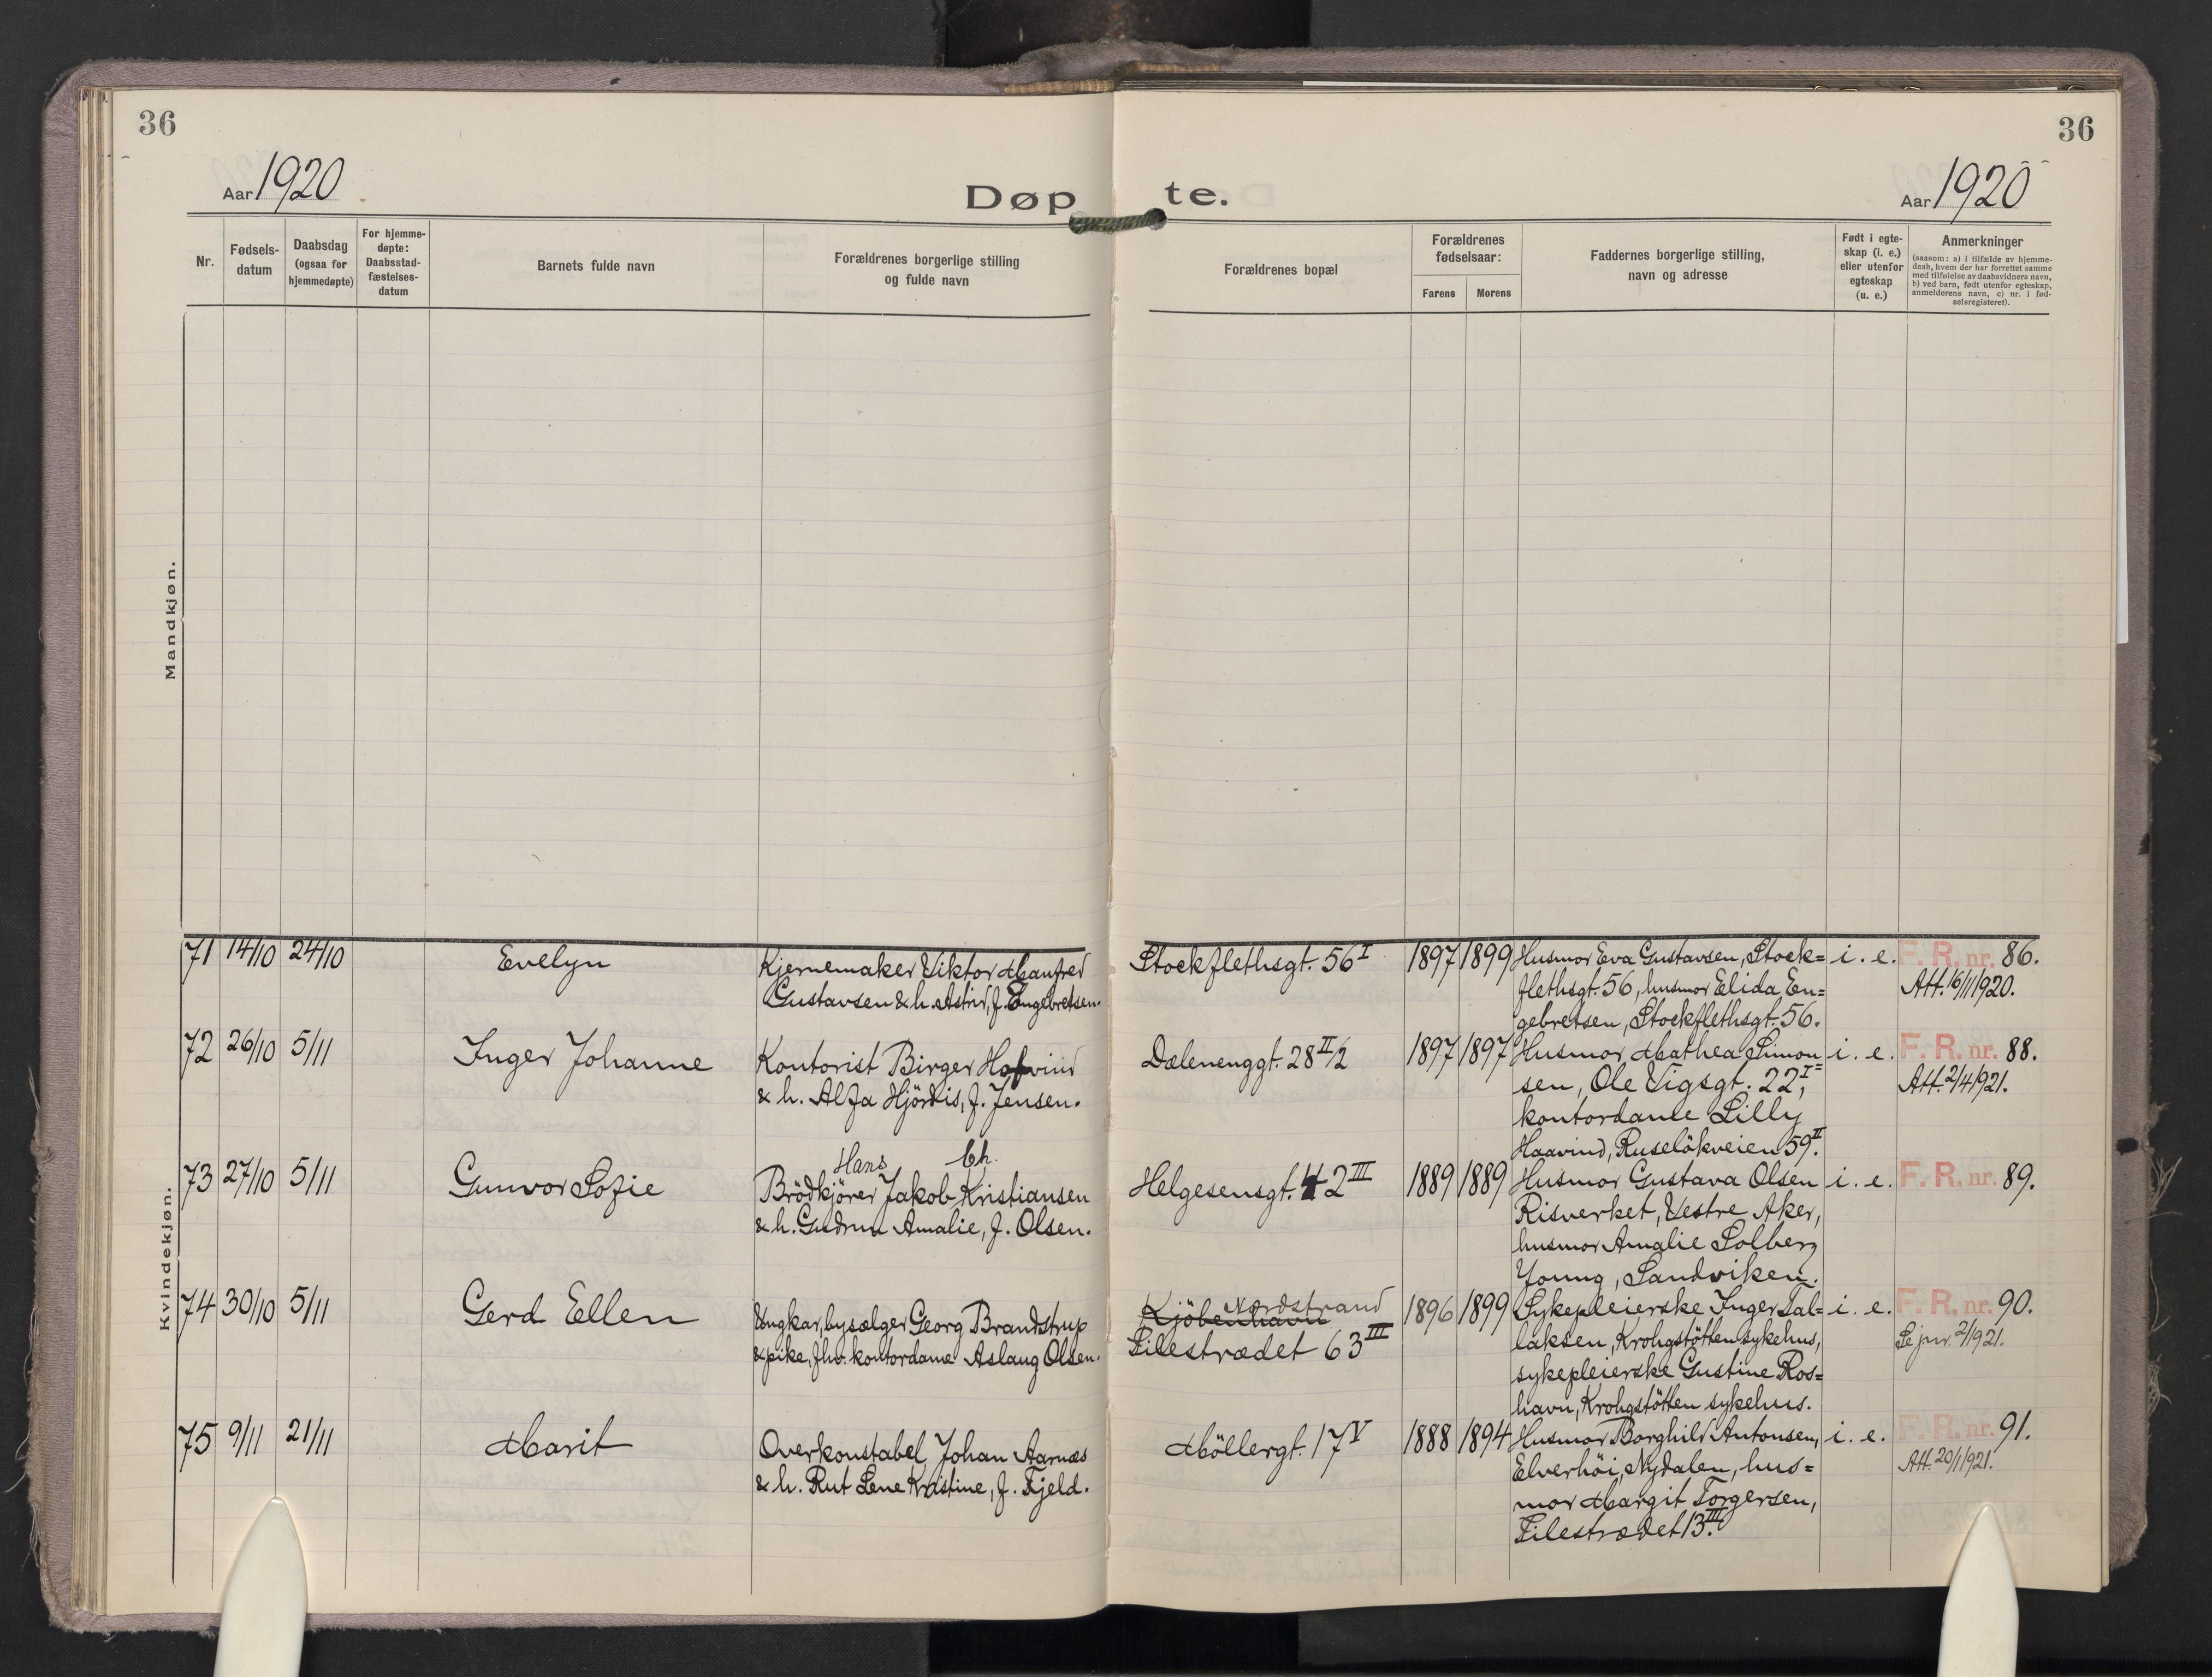 36
36
Aar 1920
Døpte.
Aar 1920
Nr.
Fødsels-
datum
Daabsdag
(ogsaa for
hjemmedøpte)
For hjemme-
døpte:
Daabsstad-
fæstelses-
datum
Barnets fulde navn
Forældrenes borgerlige stilling
og fulde navn
Forældrenes bopæl
Forældrenes
fødselsaar:
Farens
Morens
Faddernes borgerlige stilling,
navn og adresse
Født i egte-
skap (i. e.)
eller utenfor
egteskap
(u. e.)
Anmerkninger
(saasom: a) i tilfælde av hjemme-
daab, hvem der har forrettet samme
med tilføielse av daabsvidners navn,
b) ved barn, født utenfor egteskap,
anmelderens navn, c) nr. i fød-
selsregisteret).
Mandkjøn.
Kvindekjøn.
71 14/10 24/10
Evelyn
Kjernemaker Viktor Manfred
Gustavsen & h. Astrid, f. Engebretsen.
Stockflethsgt. 56 I
1897 1899
Husmor Eva Gustavsen, Stock=
flethsgt. 56, husmor Elida En=
gebretsen, Stockflethsgt. 56.
i. e.
F. R. nr. 86.
Att. 16/11 1920.
72 26/10 5/11
Inger Johanne
Kontorist Birger Hofvind
& h. Alfa Hjördis, f. Jensen.
Dælenenggt. 28 II/2
1897 1897
Husmor Mathea Simon=
sen, Ole Vigsgt. 22 I,
kontordame Lilly
Haavind, Ruseløkveien 59 II.
i. e.
F. R. nr. 88.
Att. 2/4 1921.
73 27/10 5/11
Gunvor Sofie
Hans Ch.
Brödkjörer Jakob Kristiansen
& h. Gudrun Amalie, f. Olsen.
Helgesensgt. 42 III
1889 1889
Husmor Gustava Olsen
Risverket, Vestre Aker,
husmor Amalie Solberg
Young, Sandviken.
i. e.
F. R. nr. 89.
74 30/10 5/11
Gerd Ellen
Ungkar, bysælger Georg Brandstrup
& pike, fhv. kontordame Aslaug Olsen.
Nordstrand
Kjöbenhavn
Pilestrædet 63 III
1896 1899
Sykepleierske Inger Tal=
laksen, Krohgstötten sykehus,
sykepleierske Gustine Ros=
havn, Krohgstötten sykehus.
i. e.
F. R. nr. 90.
Se jnr. 2/1921.
75 9/11 21/11
Marit
Overkonstabel Johan Aarnæs
& h. Rut Lene Kristine, f. Fjeld.
Möllergt. 17 V
1888 1894
Husmor Borghild Antonsen,
Elverhöi, Nydalen, hus=
mor Margit Torgersen,
Pilestrædet 13 III.
i. e.
F. R. nr. 91.
Att. 20/1 1921.